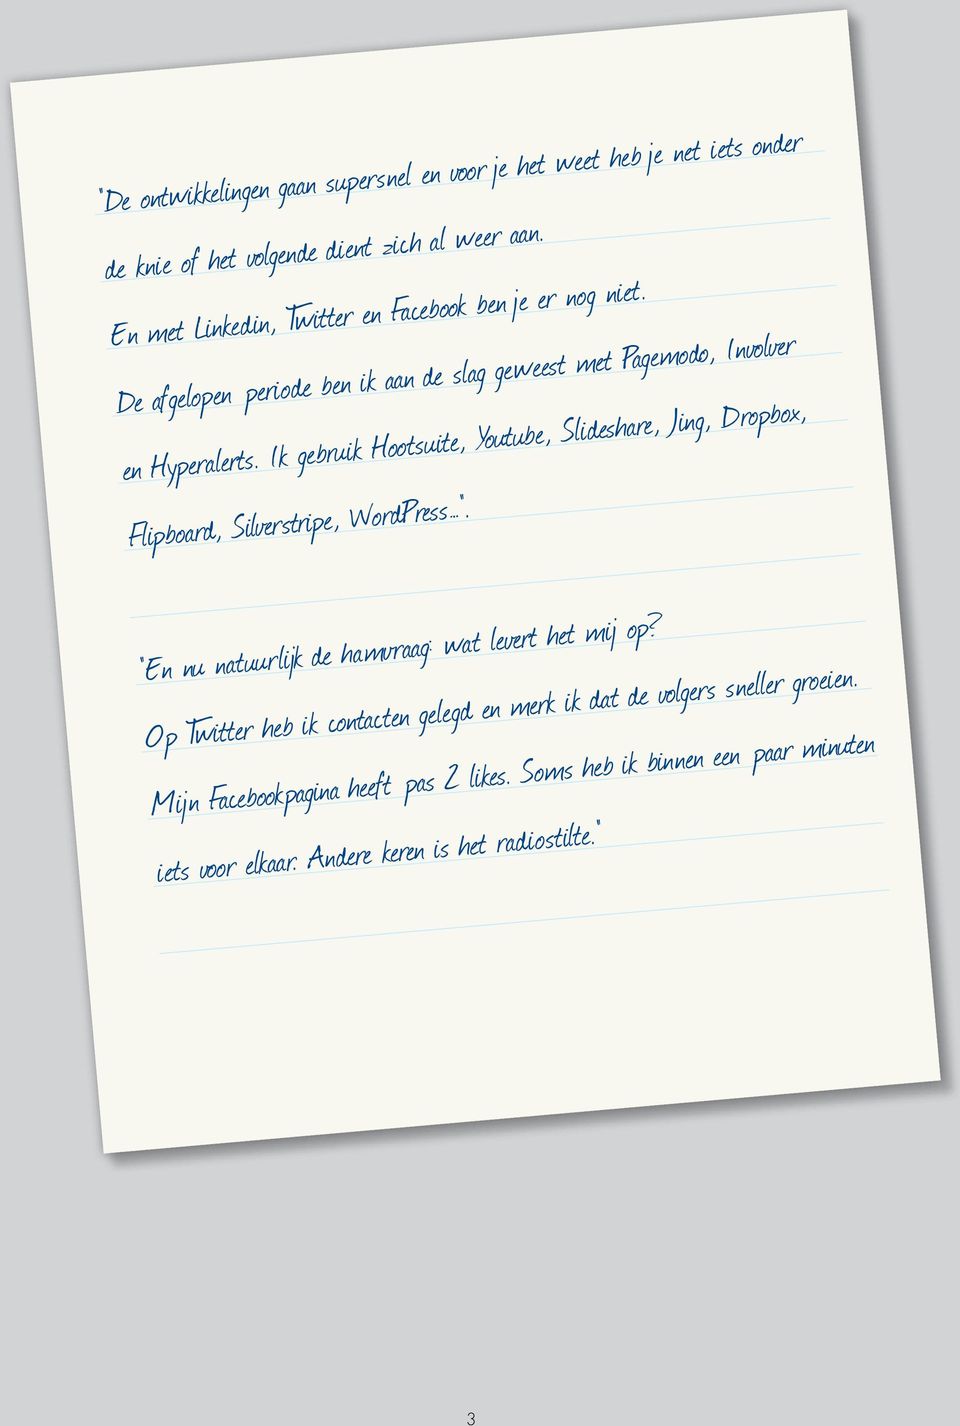 "De ontwikkelingen gaan supersnel en voor je het weet heb je net iets onder
de knie of het volgende dient zich al weer aan.
En met Linkedin, Twitter en Facebook ben je er nog niet.
De afgelopen periode ben ik aan de slag geweest met Pagemodo, Involver
en Hyperalerts. Ik gebruik Hootsuite, Youtube, Slideshare, Jing, Dropbox,
Flipboard, Silverstripe, WordPress...".
"En nu natuurlijk de hamvraag: wat levert het mij op?
Op Twitter heb ik contacten gelegd en merk ik dat de volgers sneller groeien.
Mijn Facebookpagina heeft pas 2 likes. Soms heb ik binnen een paar minuten
iets voor elkaar. Andere keren is het radiostilte."
3